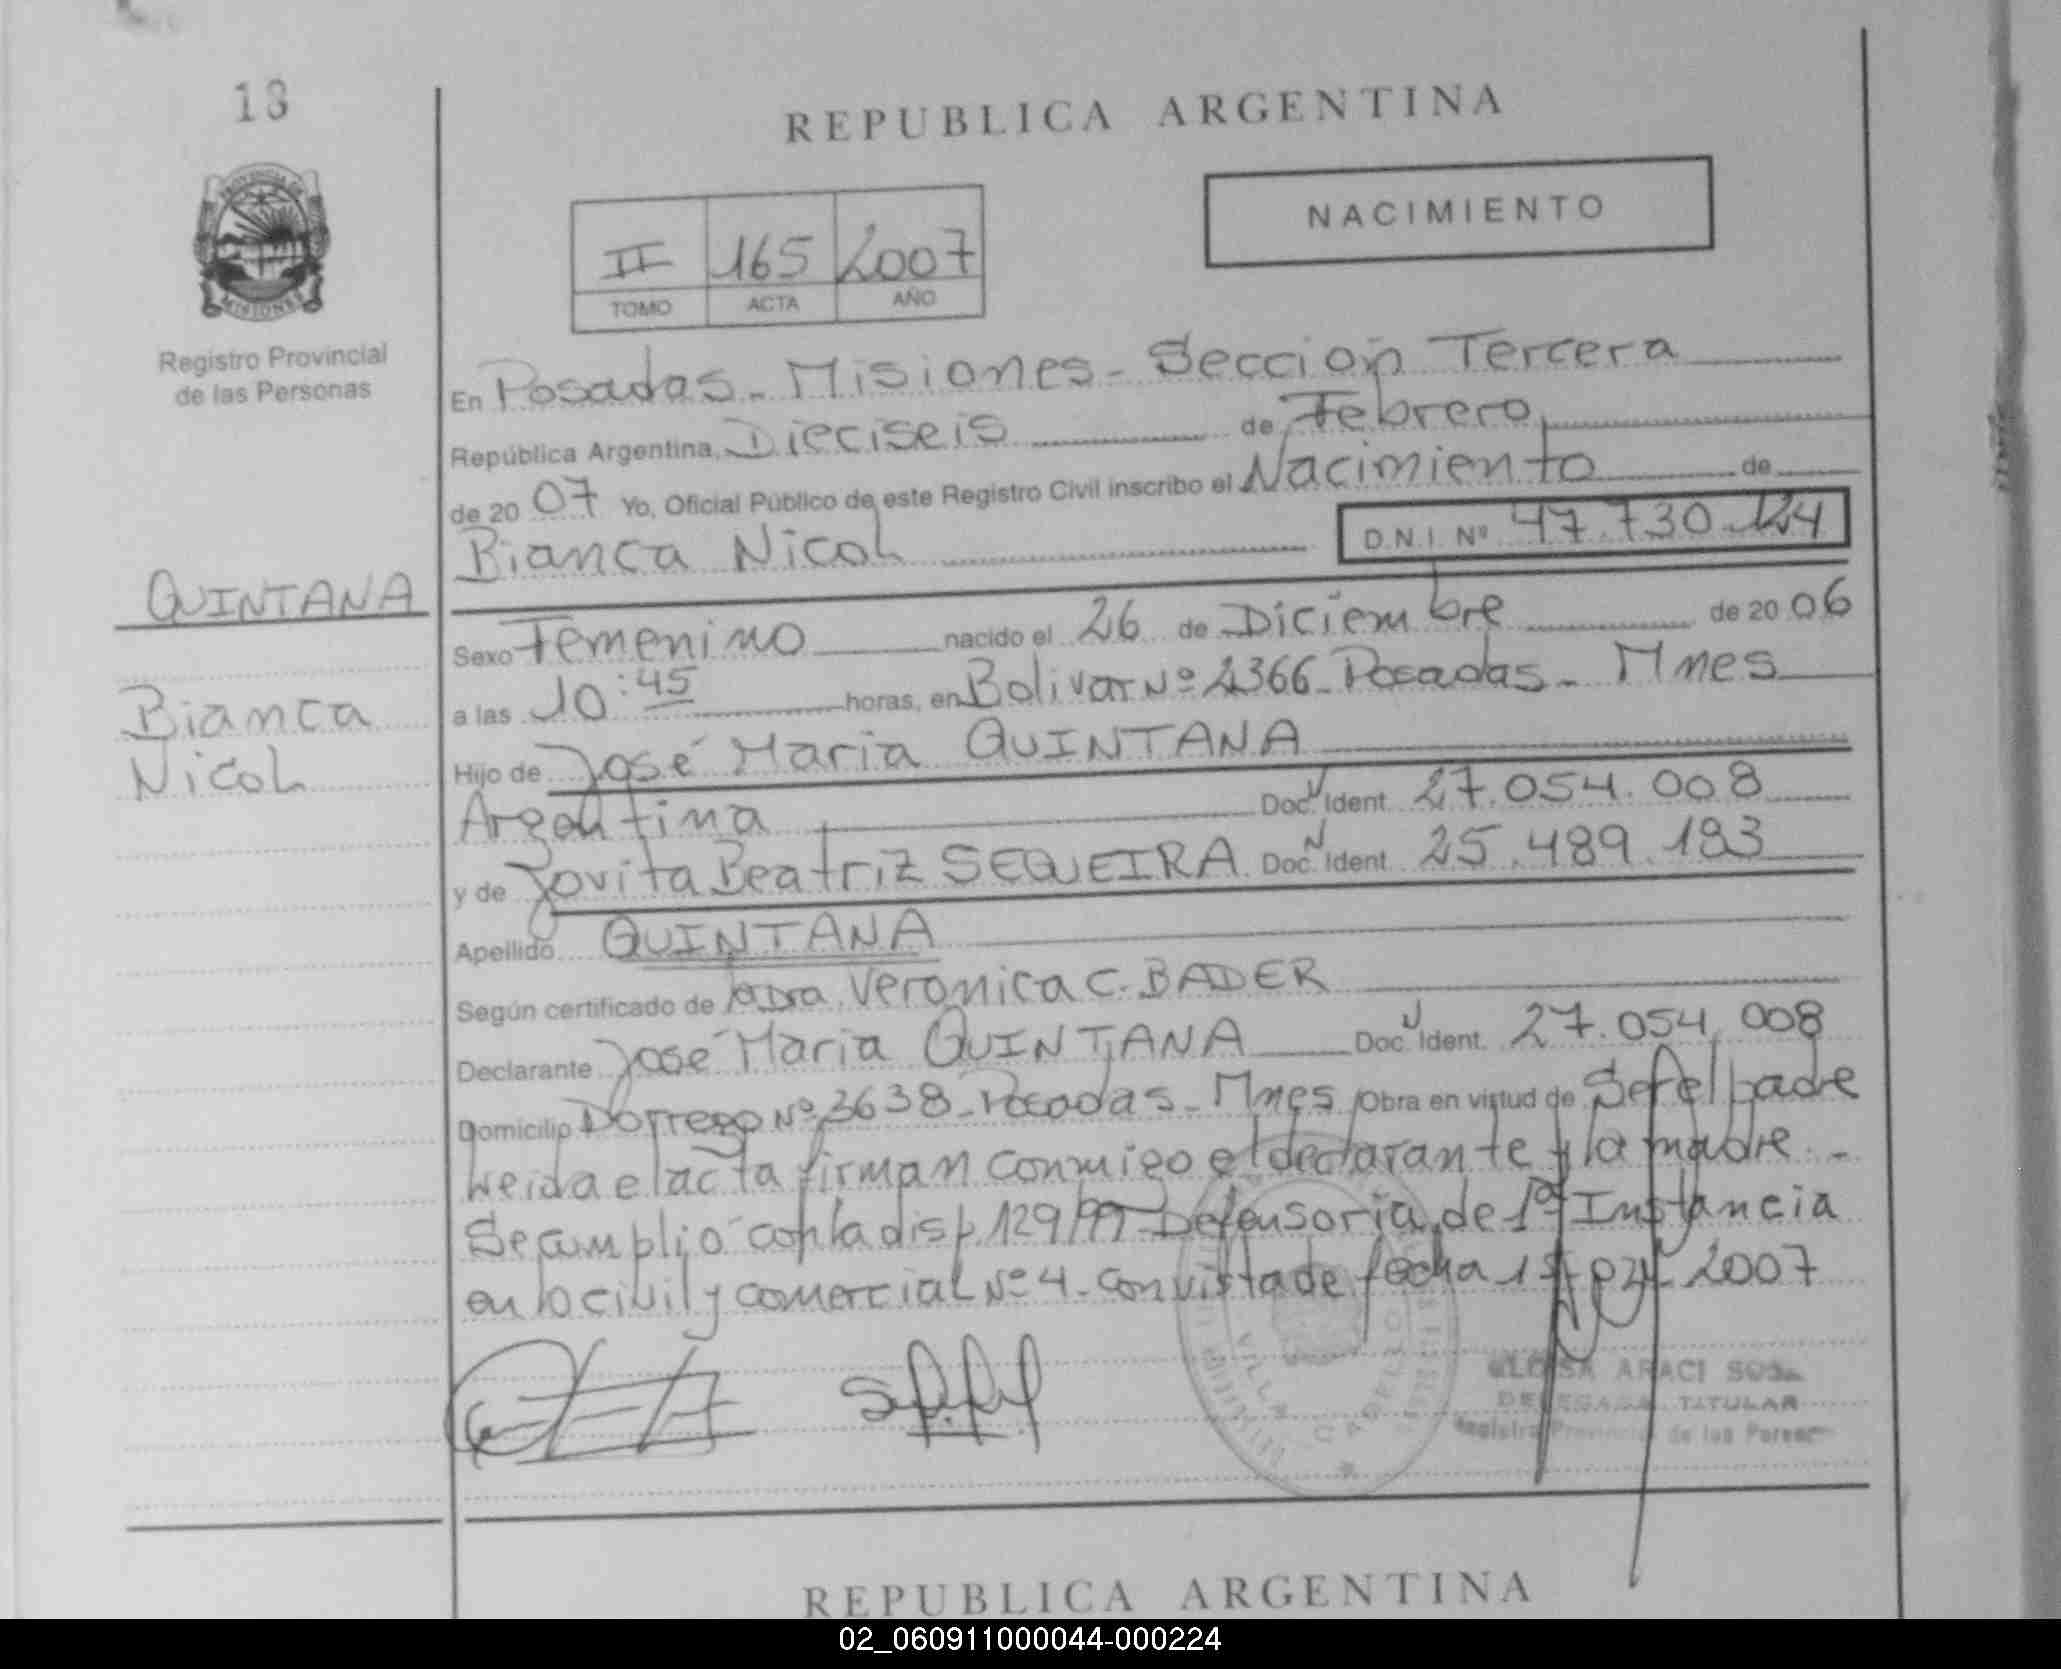 13
REPUBLICA ARGENTINA
NACIMIENTO
II 165 2007
TOMO ACTA AÑO
PROVINCIA DE MISIONES
Registro Provincial
de las Personas
En Posadas - Misiones - Sección Tercera
República Argentina, Dieciseis de Febrero
de 20 07 Yo, Oficial Público de este Registro Civil inscribo el Nacimiento de
Bianca Nicol D.N.I. Nº 47.730.124
QUINTANA
Bianca
Nicol
Sexo Femenino nacido el 26 de Diciembre de 20 06
a las 10:45 horas, en Bolivar Nº 2366 - Posadas - Mnes
Hijo de José Maria QUINTANA
Argentina Doc. Ident. 27.054.008
y de Jovita Beatriz SEQUEIRA Doc. Ident. 25.489.193
Apellido QUINTANA
Según certificado de la Dra. Veronica C. BADER
Declarante José Maria QUINTANA Doc. Ident. 27.054.008
Domicilio Dorrego Nº 3638 - Posadas - Mnes Obra en virtud de Ser el padre
Leida el acta firman conmigo el declarante y la madre -
Se cumplió con la disp. 129/99 - Defensoria de 1ª Instancia
en lo civil y comercial Nº 4 - con vista de fecha 2007
VILLA CABELLO
ARACI SOSA
DELEGADA TITULAR
Registro Provincial de las Personas
REPUBLICA ARGENTINA
02_060911000044-000224